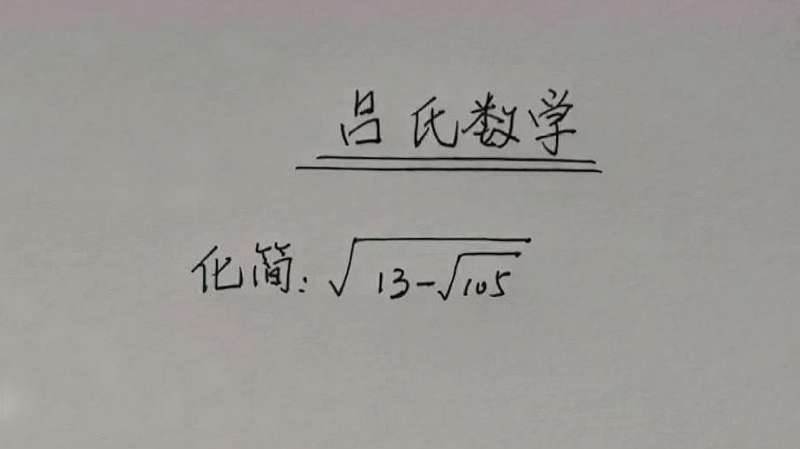 吕氏数学
化简：√(13-√105)